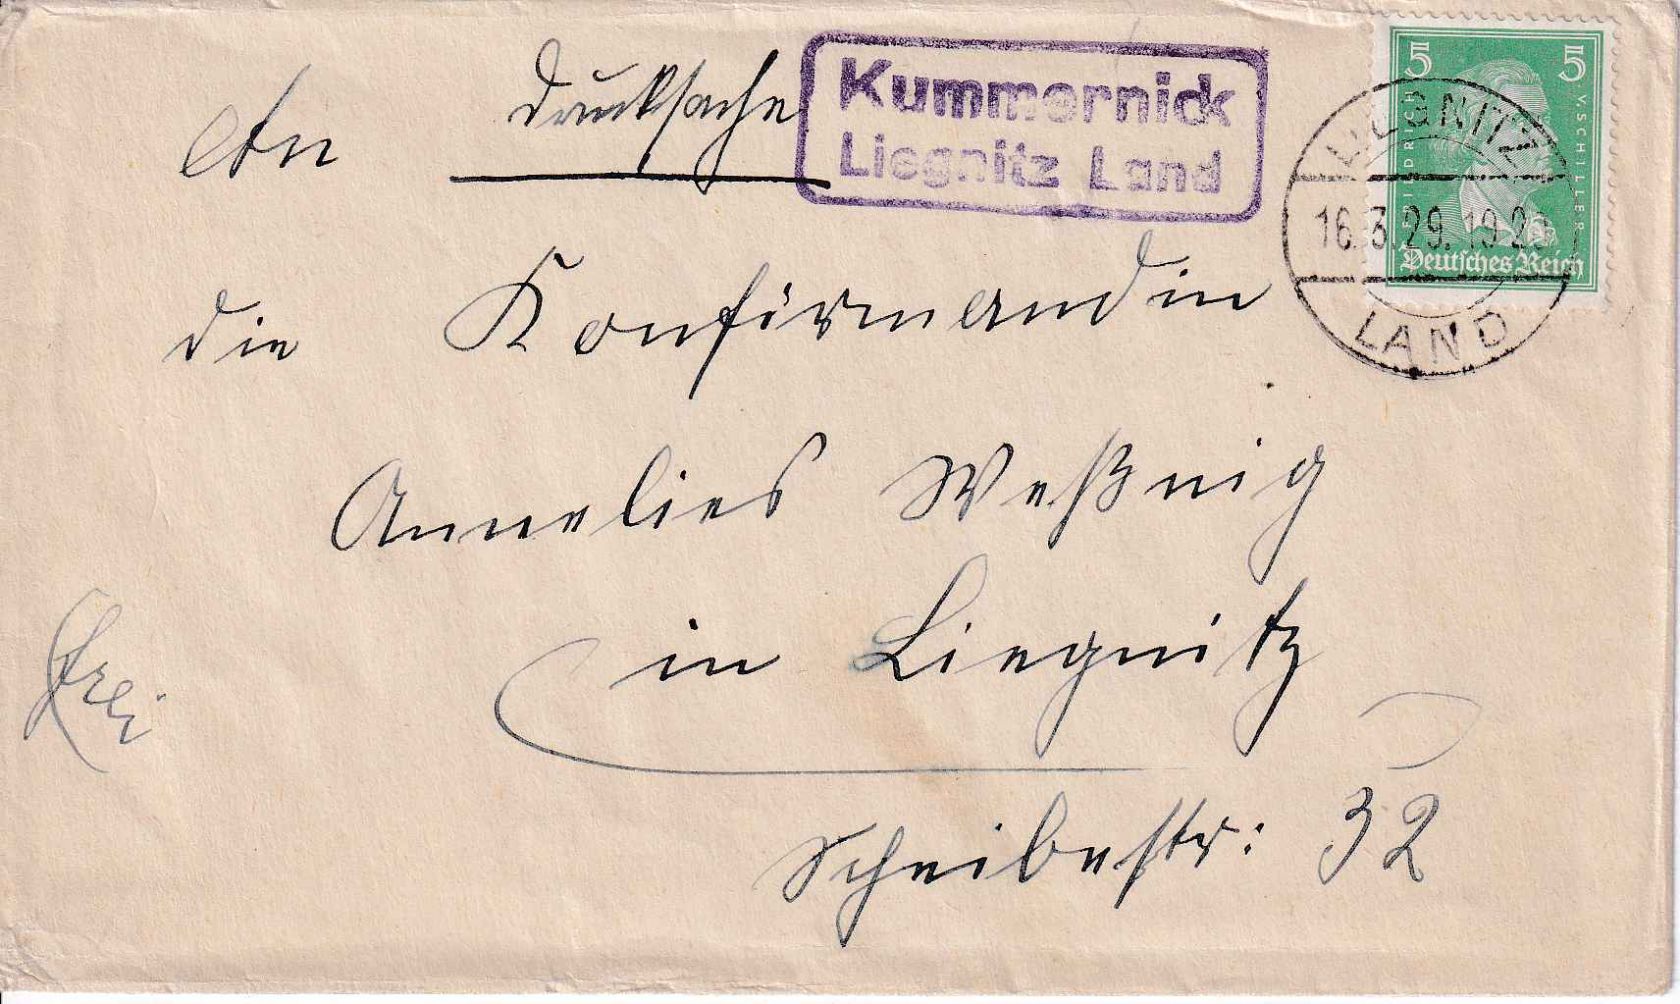 Drucksache
Kummernick
Liegnitz Land
5 5
FRIEDRICH V. SCHILLER
Deutsches Reich
LIEGNITZ
16.3.29. 19-20
LAND
An
die Konfirmandin
Annelies Weßnig
in Liegnitz
frei
Scheibestr: 32